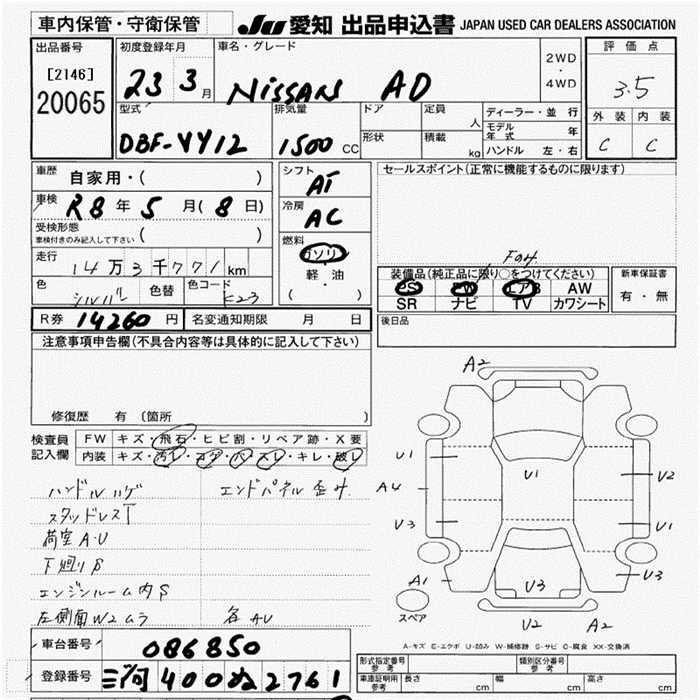 車内保管・守衛保管
JU 愛知 出品申込書 JAPAN USED CAR DEALERS ASSOCIATION
出品番号
[2146]
20065
初度登録年月
23 3月
車名・グレード
NISSAN AD
2WD
・
4WD
評価点
3.5
外装 内装
C C
型式
DBF-VY12
排気量
1500 CC
ドア
形状
定員
人
積載
kg
ディーラー・並行
モデル年式 年
ハンドル 左・右
車歴
自家用・( )
車検
R8年5月(8日)
受検形態
車検付きのみ記入して下さい ( )
走行
14万3千771km
色 シルバー 色替 色コード K23
シフト
AT
冷房
AC
燃料
ガソリン
軽・油
( ・ )
セールスポイント(正常に機能するものに限ります)
装備品(純正品に限り○をつけてください)
PS PW エアB AW
SR ナビ TV カワシート
新車保証書
有・無
後日品
R券 14260 円
名変通知期限 月 日
注意事項申告欄(不具合内容等は具体的に記入して下さい)
修復歴 有(箇所
検査員
記入欄
FW キズ・飛石・ヒビ割・リペア跡・X要
内装 キズ・汚レ・コゲ・穴・スレ・キレ・破レ
ハンドルハゲ エンドパネル歪み
スタッドレスT
荷室A・U
下廻りS
エンジンルーム内S
左側面W2ムラ 各AU
A2
U1
U1
U2
A4
U3
U1
A1
U3
U3
スペア
U2 A2
A-キズ E-エクボ U-凹み W-補修跡 S-サビ C-腐食 XX-交換済
車台番号
086850
登録番号
三河400ぬ2761
形式指定番号
参考
類別区分番号
参考
車庫証明用
参考
長さ cm
幅 cm
高さ cm